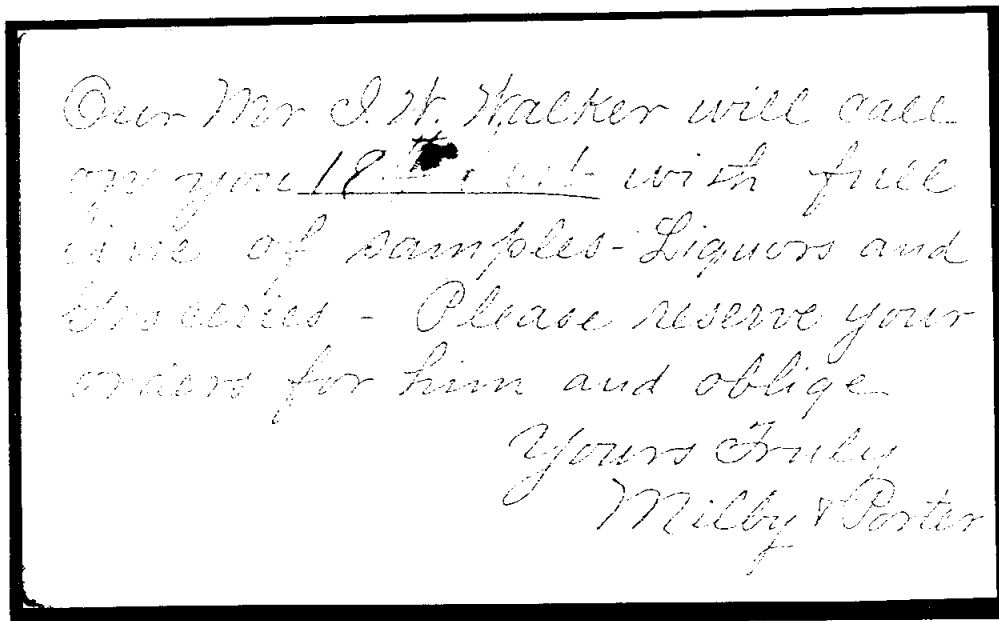 Our Mr I. W. Walker will call
on you 18th inst with full
line of samples - Liquors and
Groceries - Please reserve your
orders for him and oblige
Yours Truly
Milby & Porter